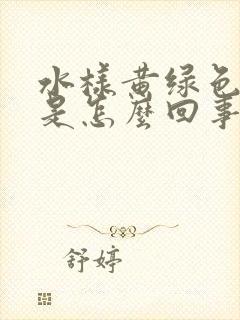 水样黄绿色
是怎麽回事
舒婷